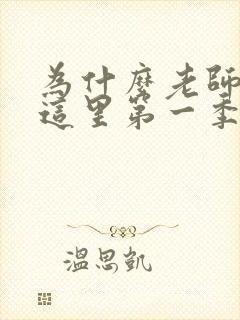 為什麼老師
這里第一季
溫思凱